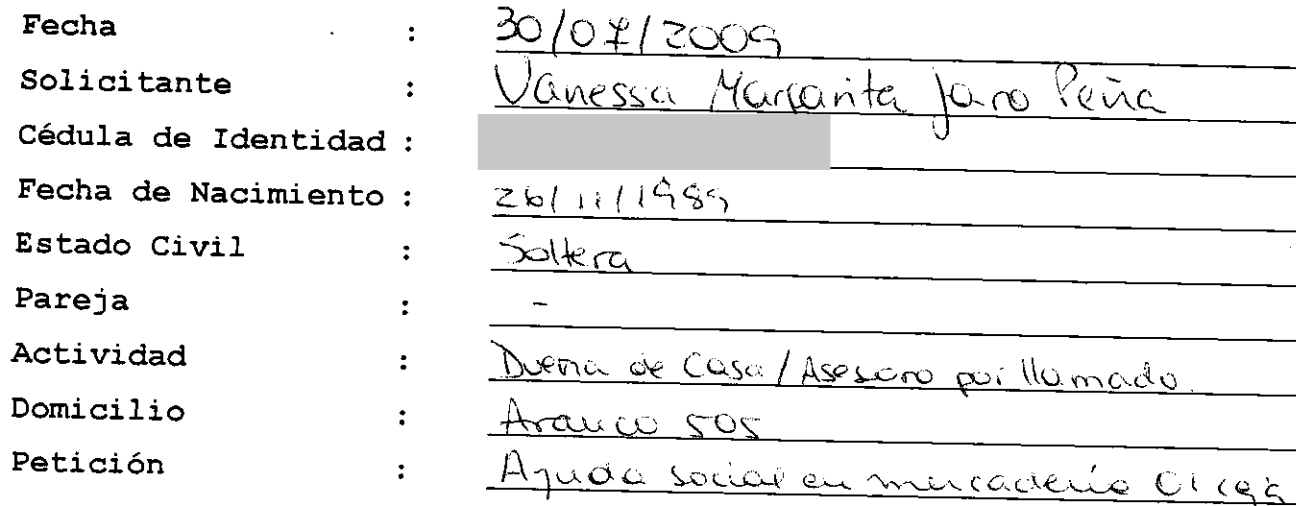 Fecha : 30/07/2009
Solicitante : Vanessa Margarita Jaro Peña
Cédula de Identidad :
Fecha de Nacimiento : 26/11/1989
Estado Civil : Soltera
Pareja : -
Actividad : Duena de Casa / Asesora por llamado.
Domicilio : Arauco 505
Petición : Ayuda social en mercadería 01 caja